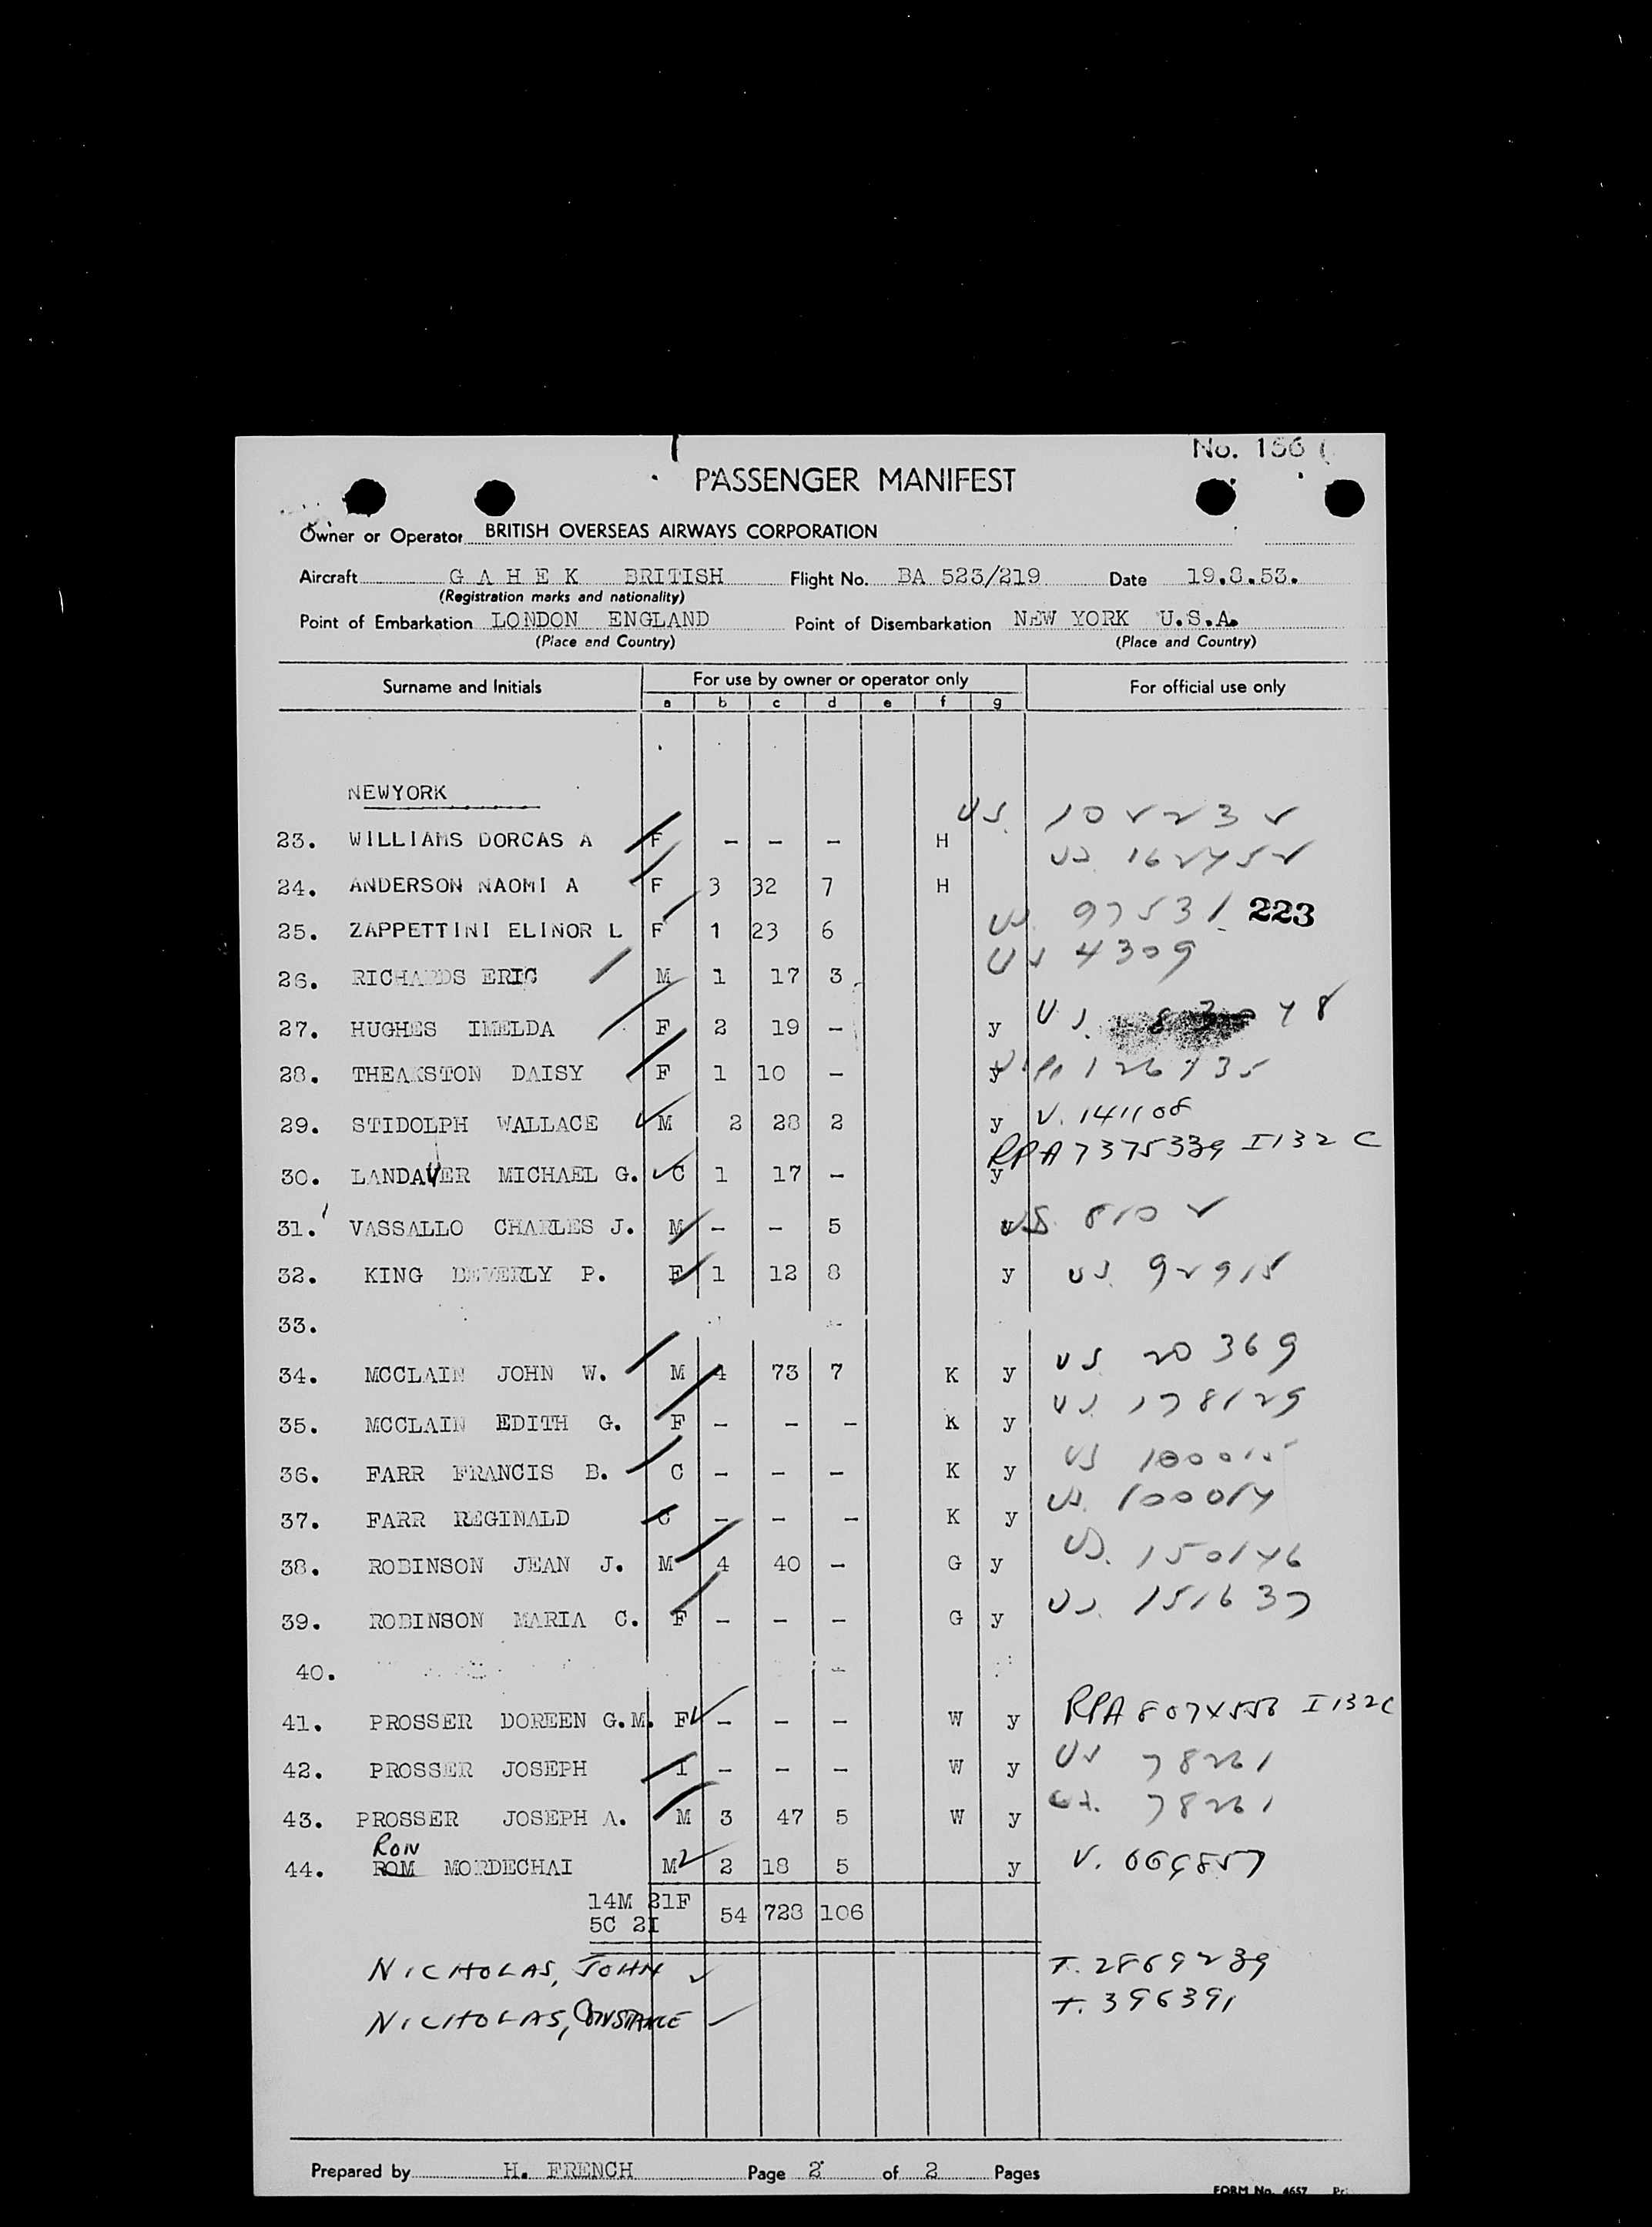 No. 156
PASSENGER MANIFEST
Owner or Operator BRITISH OVERSEAS AIRWAYS CORPORATION
Aircraft G A H E K BRITISH Flight No. BA 523/219 Date 19.8.53.
(Registration marks and nationality)
Point of Embarkation LONDON ENGLAND Point of Disembarkation NEW YORK U.S.A.
(Place and Country) (Place and Country)
Surname and Initials For use by owner or operator only For official use only
a b c d e f g
NEWYORK
23. WILLIAMS DORCAS A F - - - H US. 102232
24. ANDERSON NAOMI A F 3 32 7 H US. 162452
25. ZAPPETTINI ELINOR L F 1 23 6 US. 97531 223
26. RICHARDS ERIC M 1 17 3 US 4309
27. HUGHES IMELDA F 2 19 - y US.
28. THEAKSTON DAISY F 1 10 - y 126735
29. STIDOLPH WALLACE M 2 28 2 y V. 141108
30. LANDAUER MICHAEL G. C 1 17 - y RPA 7375339 I132 C
31. VASSALLO CHARLES J. M - - 5 US. 8102
32. KING BEVERLY P. F 1 12 8 y US. 92915
33.
34. MCCLAIN JOHN W. M 4 73 7 K y US 20369
35. MCCLAIN EDITH G. F - - - K y US. 178129
36. FARR FRANCIS B. C - - - K y US
37. FARR REGINALD C - - - K y US. 100014
38. ROBINSON JEAN J. M 4 40 - G y US. 150146
39. ROBINSON MARIA C. F - - - G y US. 151637
40.
41. PROSSER DOREEN G.M. F - - - W y RPA I132C
42. PROSSER JOSEPH I - - - W y US 78261
43. PROSSER JOSEPH A. M 3 47 5 W y US. 78261
RON
44. ROM MORDECHAI M 2 18 5 y V. 069857
14M 21F
5C 2I 54 728 106
NICHOLAS, JOHN T. 2869239
NICHOLAS, CONSTANCE T. 396391
Prepared by H. FRENCH Page 2 of 2 Pages
FORM No. 4657